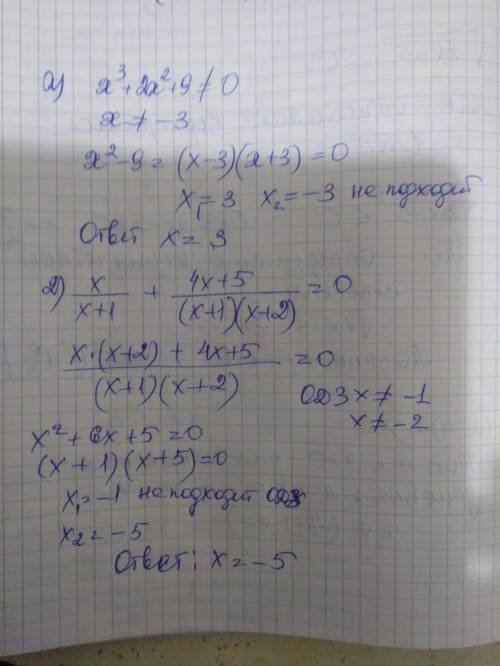 а) x³+2x²+9≠0
x ≠ -3
x²-9 = (x-3)(x+3) = 0
x₁ = 3 x₂ = -3 не подходит
Ответ x = 3
2) x/(x+1) + (4x+5)/((x+1)(x+2)) = 0
(x·(x+2) + 4x+5)/((x+1)(x+2)) = 0
ОДЗ x ≠ -1
x ≠ -2
x² + 6x + 5 = 0
(x+1)(x+5) = 0
x₁ = -1 не подходит ОДЗ
x₂ = -5
Ответ: x = -5